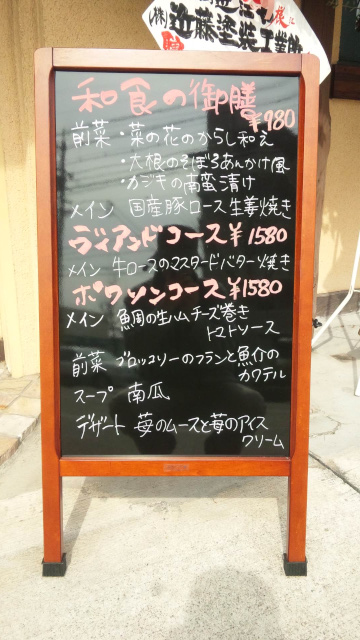 (株)近藤塗装工業
和食の御膳
¥980
前菜・菜の花のからし和え
・大根のそぼろあんかけ風
・カジキの南蛮漬け
メイン 国産豚ロース生姜焼き
ヴィアンドコース¥1580
メイン 牛ロースのマスタードバター焼き
ポワソンコース¥1580
メイン 魚周の生ハムチーズ巻き
トマトソース
前菜 ブロッコリーのフランと魚介の
カクテル
スープ 南瓜
デザート 苺のムースと苺のアイス
クリーム